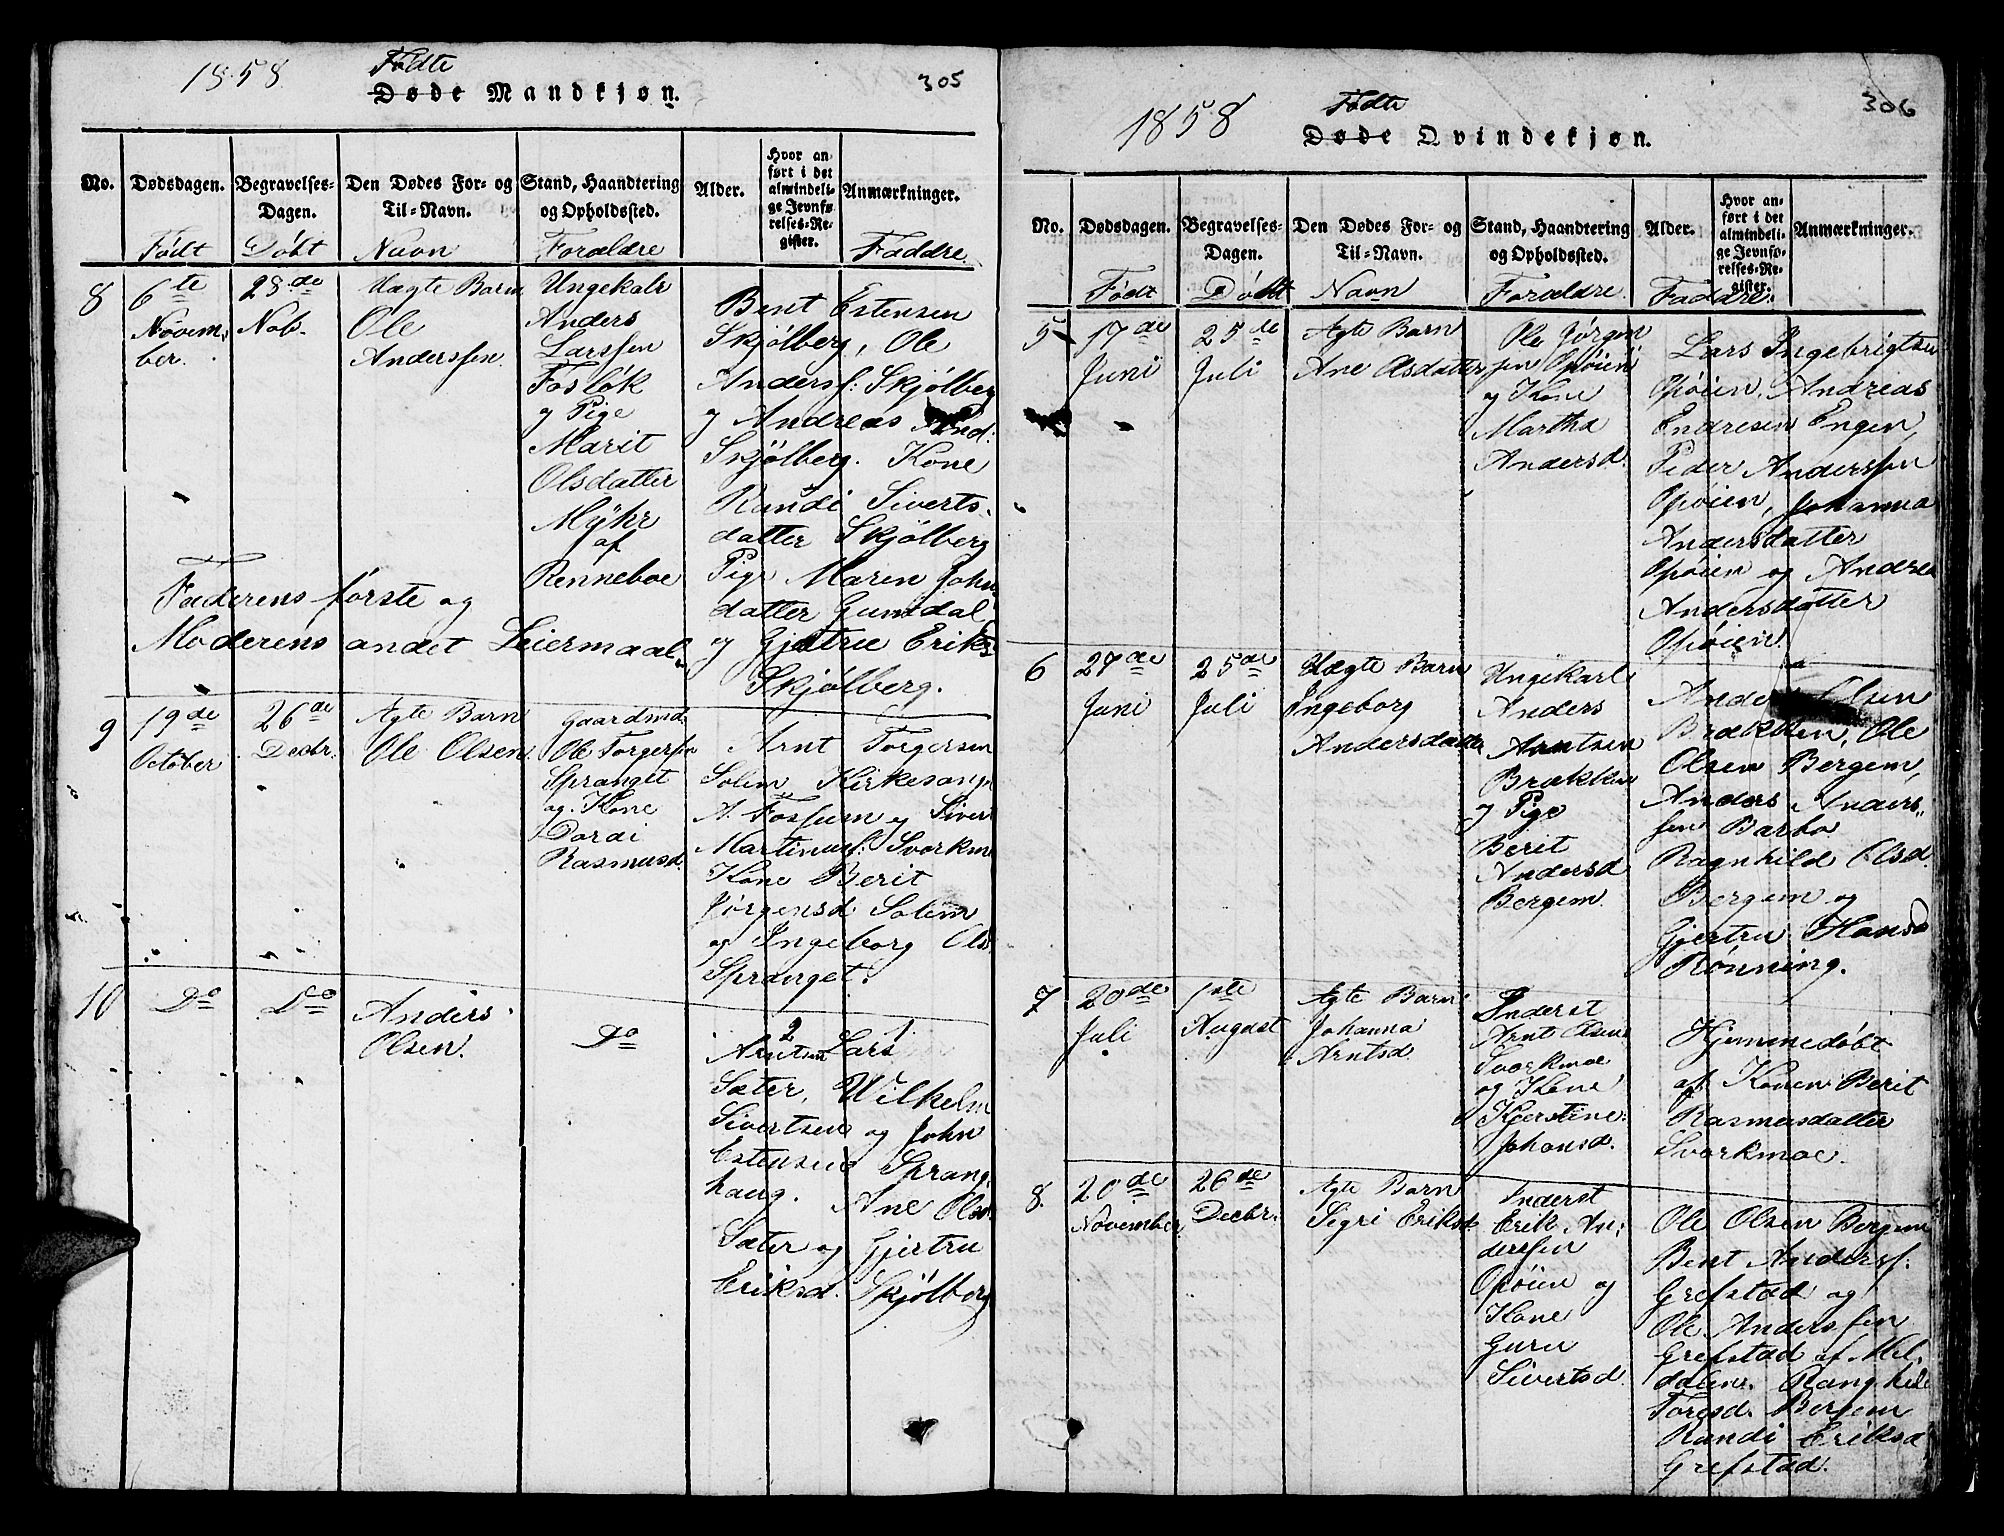 1858.
Fødte
305
Døde Mandkjøn.
No.
Dødsdagen.
Begravelses-
Dagen.
Den Dødes For- og
Til-Navn.
Stand, Haandtering
og Opholdssted.
Alder.
Hvor an-
ført i det
almindeli-
ge Jevnfø-
relses-Re-
gister.
Anmærkninger.
Født
Døbt
Navn
Forældre
Faddre.
8
6te
Novem-
ber.
28de
Nob.
Uægte Barn
Ole
Anderssen.
Ungekalr
Anders
Larssen
Fosløk
og Pige
Marit
Olsdatter
Mÿhr
af
Renneboe
Bent Estensen
Skjølberg, Ole
Andersf: Skjølberg
og Andreas And:
Skjølberg. Kone
Randi Siverts-
datter Skjølberg
Pige Maren John
datter Gumdal
og Gjætru Eriks
Skjølberg.
Faderens første og
Moderens andet Leiermaal.
9
19de
October
26de
Decbr.
Ægte Barn
Ole Olsen.
Gaardmd.
Ole Torgersen
Spranget
og Kone
Dordi
Rasmusd.
Arnt Torgersen
Solem, Kirkesang
A. Fossum og Siver
Martinusf: Svorkm
Kone Berit
Jørgensd Solem
og Ingeborg Ols
Spranget.
10
Do
Do
Anders
Olsen.
Do
2 1
Arntsen Lars
Sæter, Wilhelm
Sivertsen og John
Estensen Sprang
haug. Ane Olsd
Sæter og Gjertru
Eriksd. Skjølberg
1858
Fødte
306
Døde Qvindekjøn.
No.
Dødsdagen.
Begravelses-
Dagen.
Den Dødes For- og
Til-Navn.
Stand, Haandtering
og Opholdssted.
Alder.
Hvor an-
ført i det
almindeli-
ge Jevnfø-
relses-Re-
gister.
Anmærkninger.
Født
Døbt
Navn
Forældre
Faddre.
5
17de
Juni
25de
Juli
Ægte Barn
Ane Olsdatter
Ole Jørgen
sen Opøien
og Kone
Martha
Andersd.
Lars Ingebrigtsen
Opøien, Andreas
Endresen Engen,
Peder Anderssen
Opøien, Johanna
Andersdatter
Opøien og Andrea
Andersdatter
Opøien.
6
27de
Juni
25de
Juli
Uægte Barn
Ingeborg
Andersdatter
Ungekarl
Anders
Arntsen
Brækken
og Pige
Berit
Andersd
Bergem.
Anders Olsen
Brækken, Ole
Olsen Bergem,
Anders Anders-
sen Barbo
Ragnhild Olsd.
Bergem og
Gjertru Hansd
Rønning.
7
20de
Juli
1ste
August
Ægte Barn
Johanna
Arntsd.
Inderst
Arnt Olsen
Svorkmoe
og Kone
Kjerstine
Johansd.
Hjemmedøbt
af Konen Berit
Rasmusdatter
Svorkmoe.
8.
20de
November
26de
Decbr.
Ægte Barn
Sigri Eriksd
Inderst
Erik An-
derssen
Opøien og
Kone
Guru
Sivertsd.
Ole Olsen Bergem
Bent Andersf:
Grefstad og
Ole Anderssen
Grefstad af Mel-
dalen. Ranghild
Toresd. Bergem
Randi Eriksd
Grefstad.